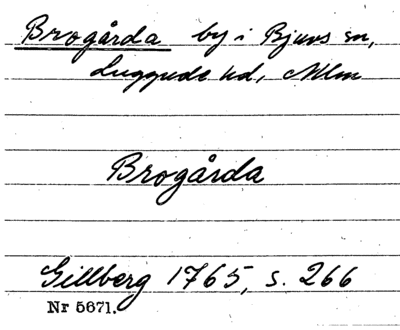 Brogårda by i Bjuvs sn,
Luggude hd, Mlm
Brogårda
Gillberg 1765, s. 266
Nr 5671.